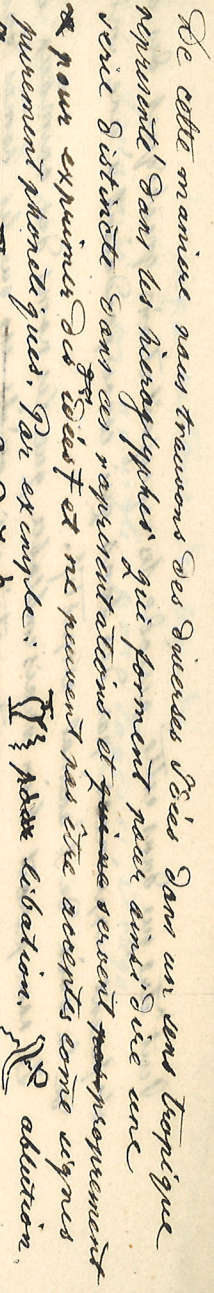 De cette maniere nous trouvons des diverses Idées dans un sens tropique
représenté dans les hieroglyphes qui forment pour ainsi dire une
serie distincte dans ces representations et qui ne servent pas proprement
pour exprimer des idées et ne peuvent pas être acceptés come signes
purement phonétiques. Par exemple: libation. ablution.